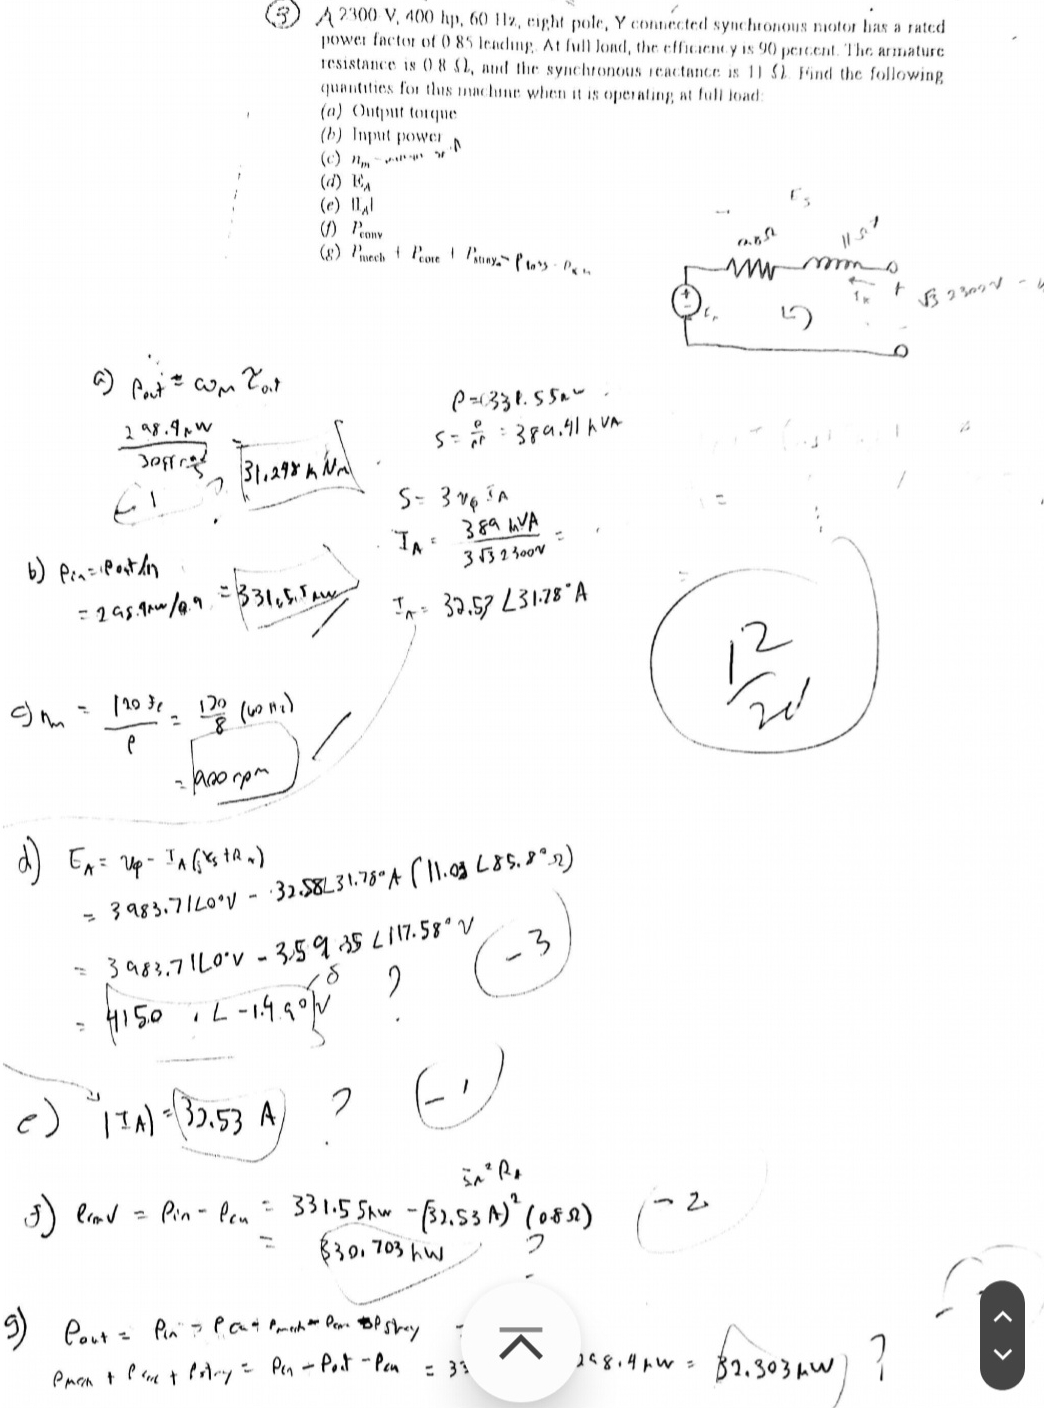 3 A 2300 V, 400 hp, 60 Hz, eight pole, Y connected synchronous motor has a rated
power factor of 0 85 leading. At full load, the efficiency is 90 percent. The armature
resistance is 0 8 Ω, and the synchronous reactance is 11 Ω. Find the following
quantities for this machine when it is operating at full load:
(a) Output torque
(b) Input power
(c) nm
(d) EA
(e) |IA|
(f) Pconv
(g) Pmech + Pcore + Pstray = Ploss - Pcu
0.8Ω
11Ω
√3 2300V
a) Pout = ωm τout
298.4kW
31.298 kNm
-1 ?
P = 331.55kW
S = P/PF = 389.41 kVA
S = 3 Vφ IA
IA = 389 kVA / 3√3 2300V =
IA = 32.53 ∠31.78° A
b) Pin = Pout/η
= 298.4kW/0.9 = 331.55kW
c) nm = 120 fe / P = 120/8 (60 Hz)
= 900 rpm
12/20
d) EA = Vφ - IA (jXs + RA)
= 3983.71∠0°V - 32.58∠31.78°A (11.03 ∠85.8°Ω)
= 3983.71∠0°V - 359.35 ∠117.58° V
-3
= 4150 ∠-14.9° V ?
e) |IA| = 32.53 A ? -1
f) Pconv = Pin - Pcu = 331.55kW - (32.53 A)² (0.8Ω) -2
IA² RA
= 330.703 kW ?
g) Pout = Pin - Pcu - Pmech - Pcore - Pstray
Pmech + Pcore + Pstray = Pin - Pout - Pcu = 298.4kW = 32.303kW ?